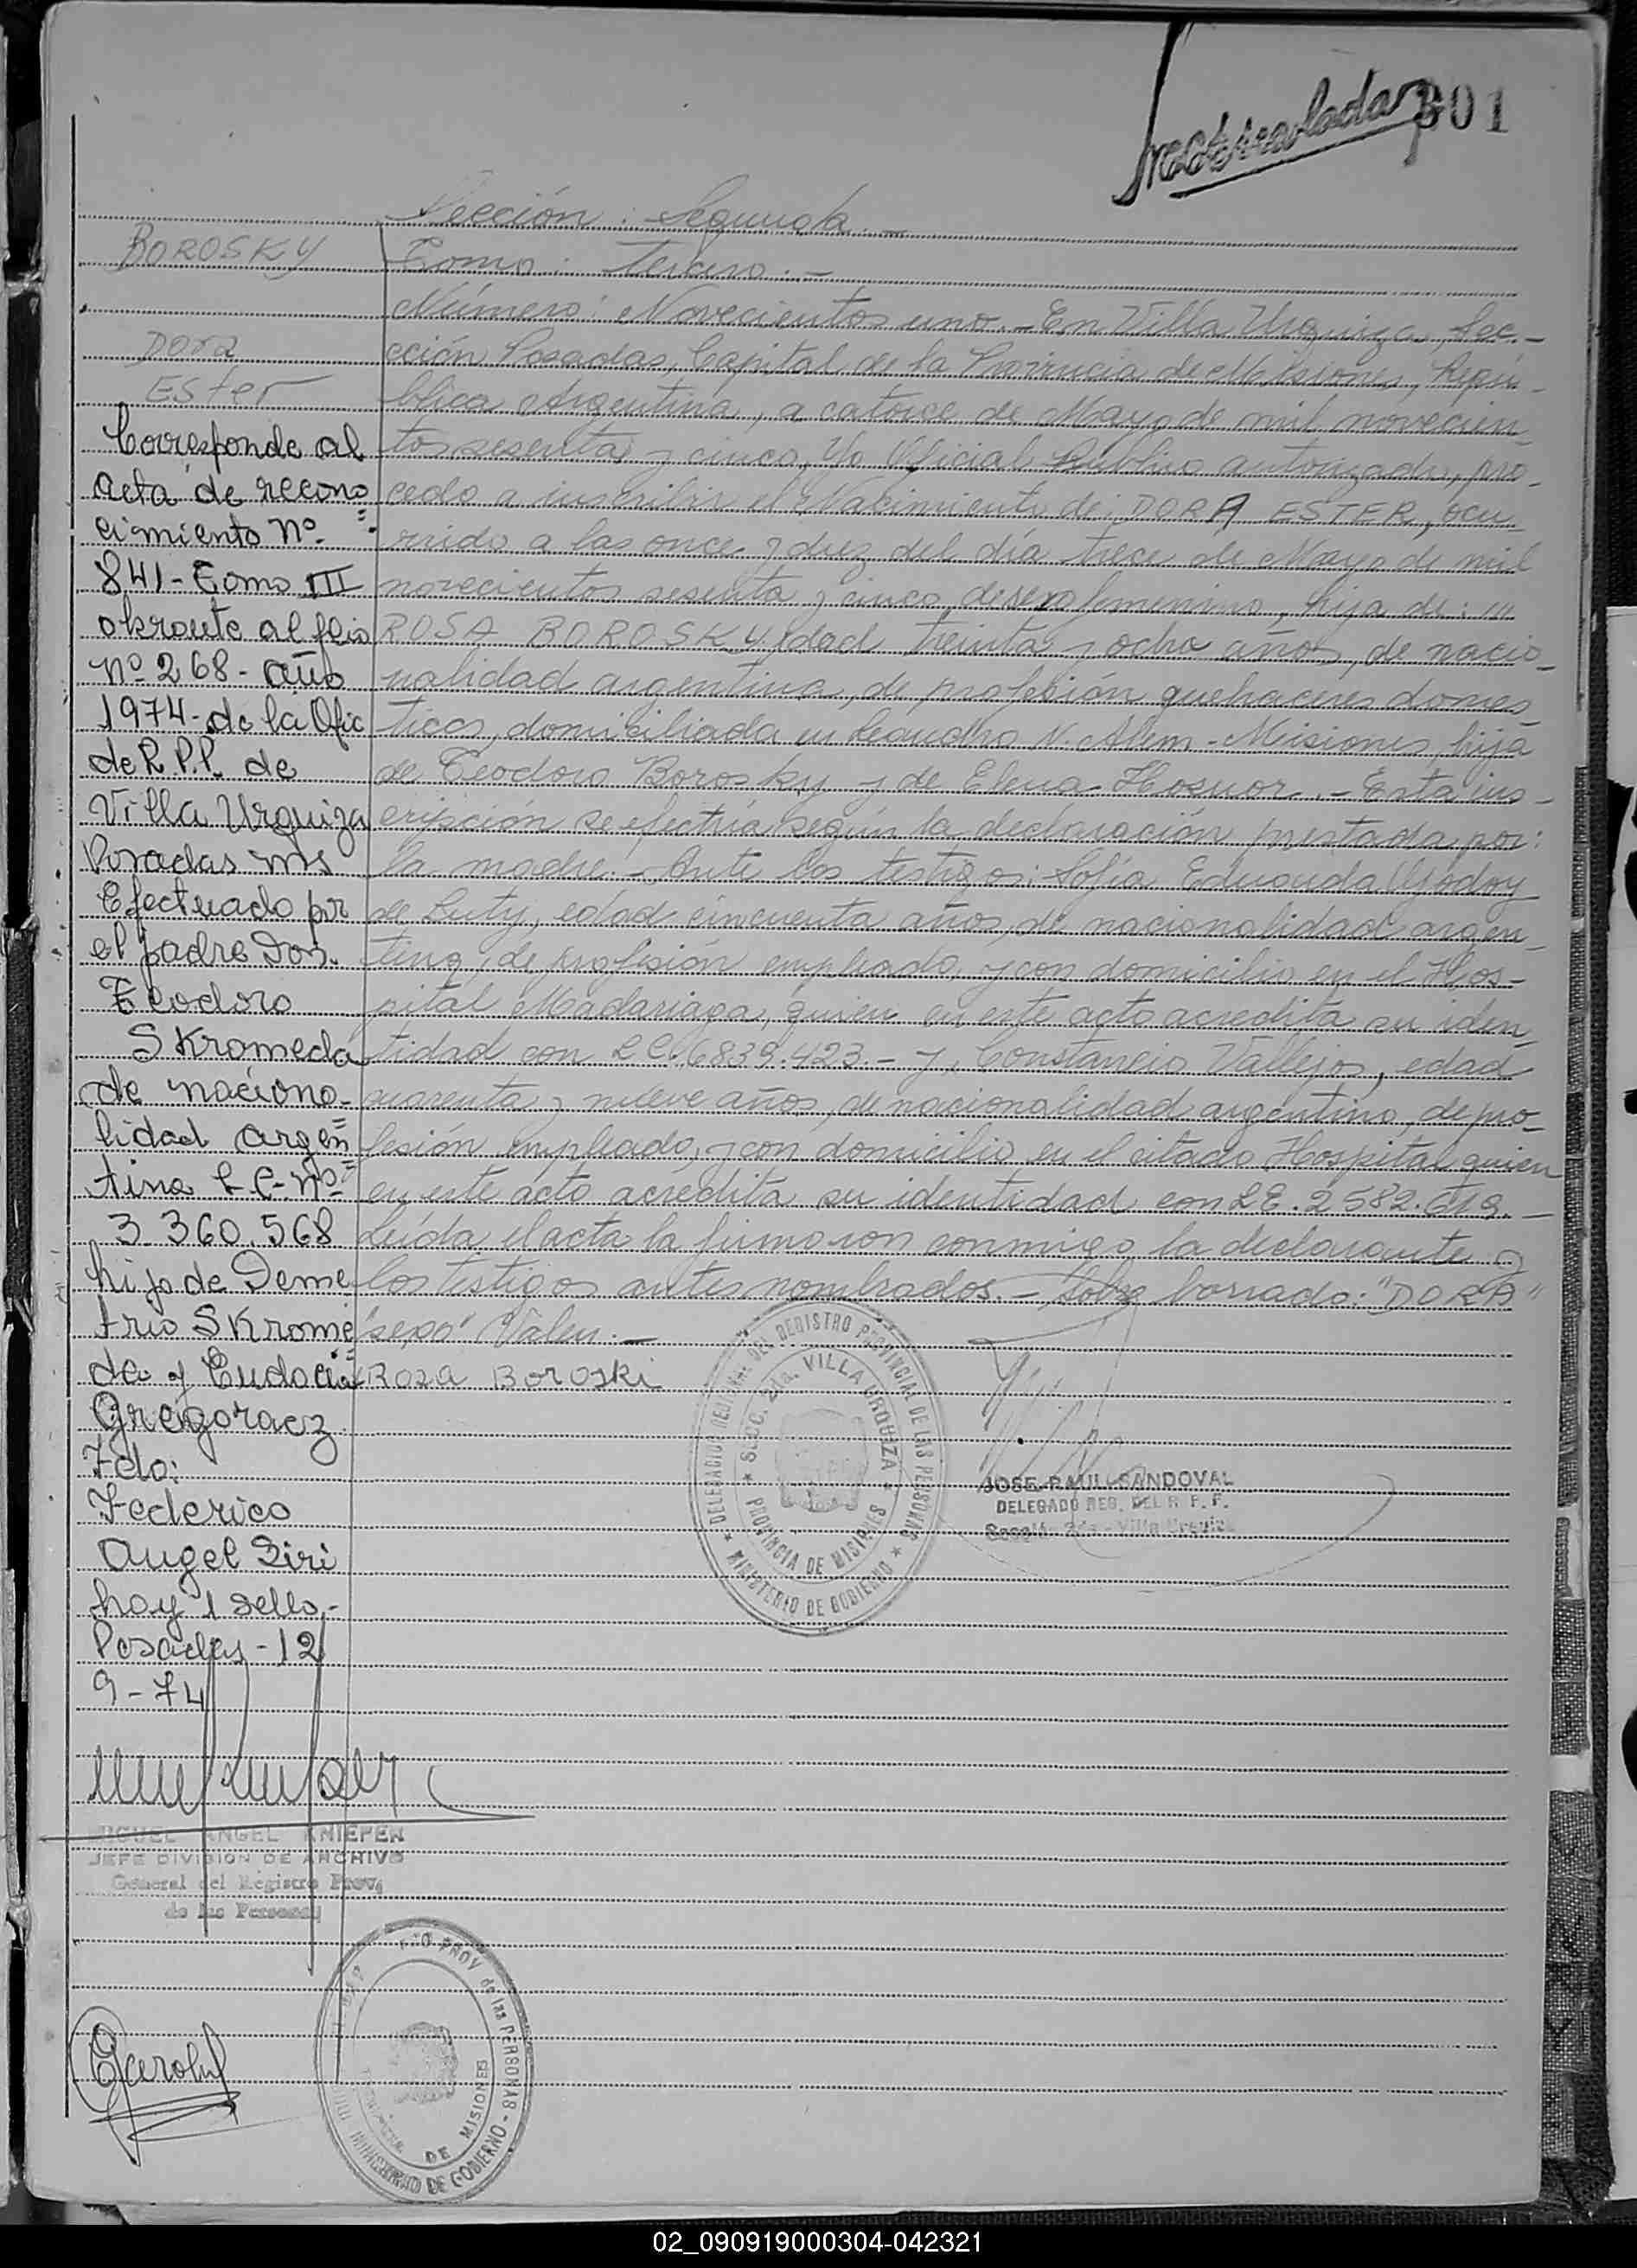 901
Sección: Segunda.-
Tomo: Tercero.-
Número: Novecientos uno.- En Villa Urquiza, Sec.-
cción Posadas, Capital de la Provincia de Misiones, Repú-
blica Argentina, a catorce de Mayo de mil novecien-
tos sesenta y cinco, Yo Oficial Publico autorizado, pro-
cedo a inscribir el Nacimiento de: DORA ESTER, ocu-
rrido a las once y diez del día trece de Mayo de mil
novecientos sesenta y cinco, de sexo femenino, hija de:
ROSA BOROSKY, edad treinta y ocho años, de nacio-
nalidad argentina, de profesión quehaceres domes-
ticos, domiciliada en Leandro N. Alem - Misiones, hija
de Teodoro Borosky y de Elena Hosnor.- Esta ins-
cripción se efectúa según la declaración prestada por:
la madre.- Ante los testigos: Sofía Eduarda Godoy
de Luty, edad cincuenta años, de nacionalidad argen-
tina, de profesión empleada, y con domicilio en el Hos-
pital Madariaga, quien en este acto acredita su iden-
tidad con LC. 6839.423.- y, Constancio Vallejos, edad
cuarenta y nueve años, de nacionalidad argentino, de pro-
fesión empleado, y con domicilio en el citado Hospital quien
en este acto acredita su identidad con LE. 2582.619.-
Leída el acta la firmaron conmigo la declarante y
los testigos antes nombrados.- Sobre borrado: "DORA"
"sexo" Valen.-
Roza Boroski
BOROSKY
Dora
Ester
Corresponde al
acta de recono
cimiento Nº
841 - Tomo III
obrante al folio
Nº 268 - año
1974 - de la Ofic
de R.P.P. de
Villa Urquiza
Posadas Mns
Efectuado por
el padre Don
Teodoro
SKromeda
de naciona-
lidad argen=
tina L C- Nº
3.360.568
hijo de Deme
trio SKrome=
da y Eudocia
Gregoracz
Fdo:
Federico
Angel Ziri
hay 1 sello.-
Posadas - 12
9 - 74
DELEGACION REGIONAL DEL REGISTRO PROVINCIAL DE LAS PERSONAS
MINISTERIO DE GOBIERNO
SECC. 2da. VILLA URQUIZA
PROVINCIA DE MISIONES
JOSE RAUL SANDOVAL
DELEGADO REG. DEL R. P. P.
Sección 2da - Villa Urquiza
MIGUEL ANGEL KNIEPEN
JEFE DIVISION DE ARCHIVO
General del Registro Prov.
de las Personas
PROV de las PERSONAS - MINISTERIO DE GOBIERNO
DE MISIONES
02_090919000304-042321